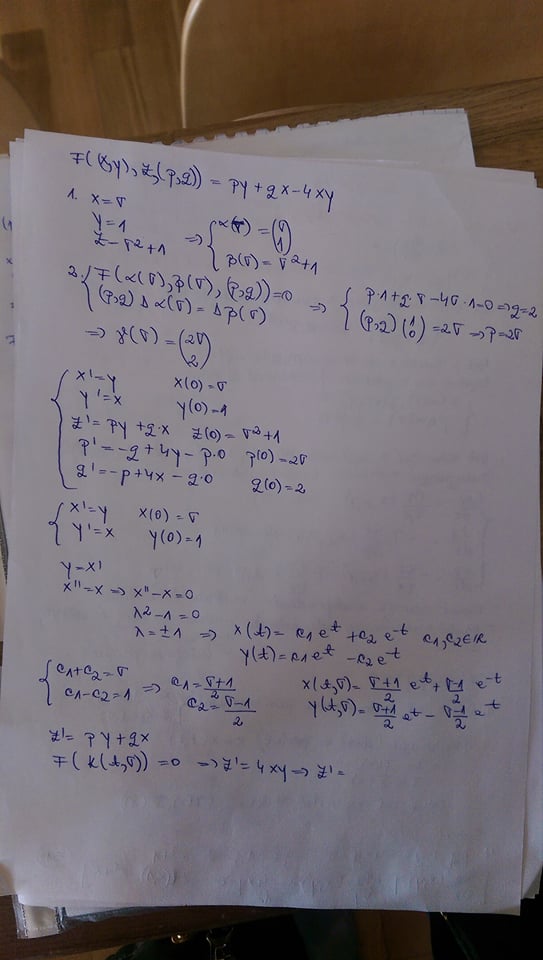 F((x,y), z, (p,q)) = py + qx - 4xy
1. x = σ
y = 1
z = σ² + 1 ⇒ { α(σ) = (σ 1)
β(σ) = σ² + 1
2. { F(α(σ), β(σ), (p,q)) = 0 ⇒ { p·1 + q·σ - 4σ·1 = 0 ⇒ q = 2
(p,q) Δ α(σ) = Δ β(σ) (p,q) (1 0) = 2σ ⇒ p = 2σ
⇒ γ(σ) = (2σ 2)
{ x' = y x(0) = σ
y' = x y(0) = 1
z' = py + q·x z(0) = σ² + 1
p' = -q + 4y - p·0 p(0) = 2σ
q' = -p + 4x - q·0 q(0) = 2
{ x' = y x(0) = σ
y' = x y(0) = 1
y = x'
x'' = x ⇒ x'' - x = 0
λ² - 1 = 0
λ = ±1 ⇒ x(t) = c1 e^t + c2 e^-t c1, c2 ∈ R
y(t) = c1 e^t - c2 e^-t
{ c1 + c2 = σ
c1 - c2 = 1 ⇒ c1 = (σ+1)/2
c2 = (σ-1)/2
x(t,σ) = (σ+1)/2 e^t + (σ-1)/2 e^-t
y(t,σ) = (σ+1)/2 e^t - (σ-1)/2 e^-t
z' = py + qx
F(k(t,σ)) = 0 ⇒ z' = 4xy ⇒ z' =